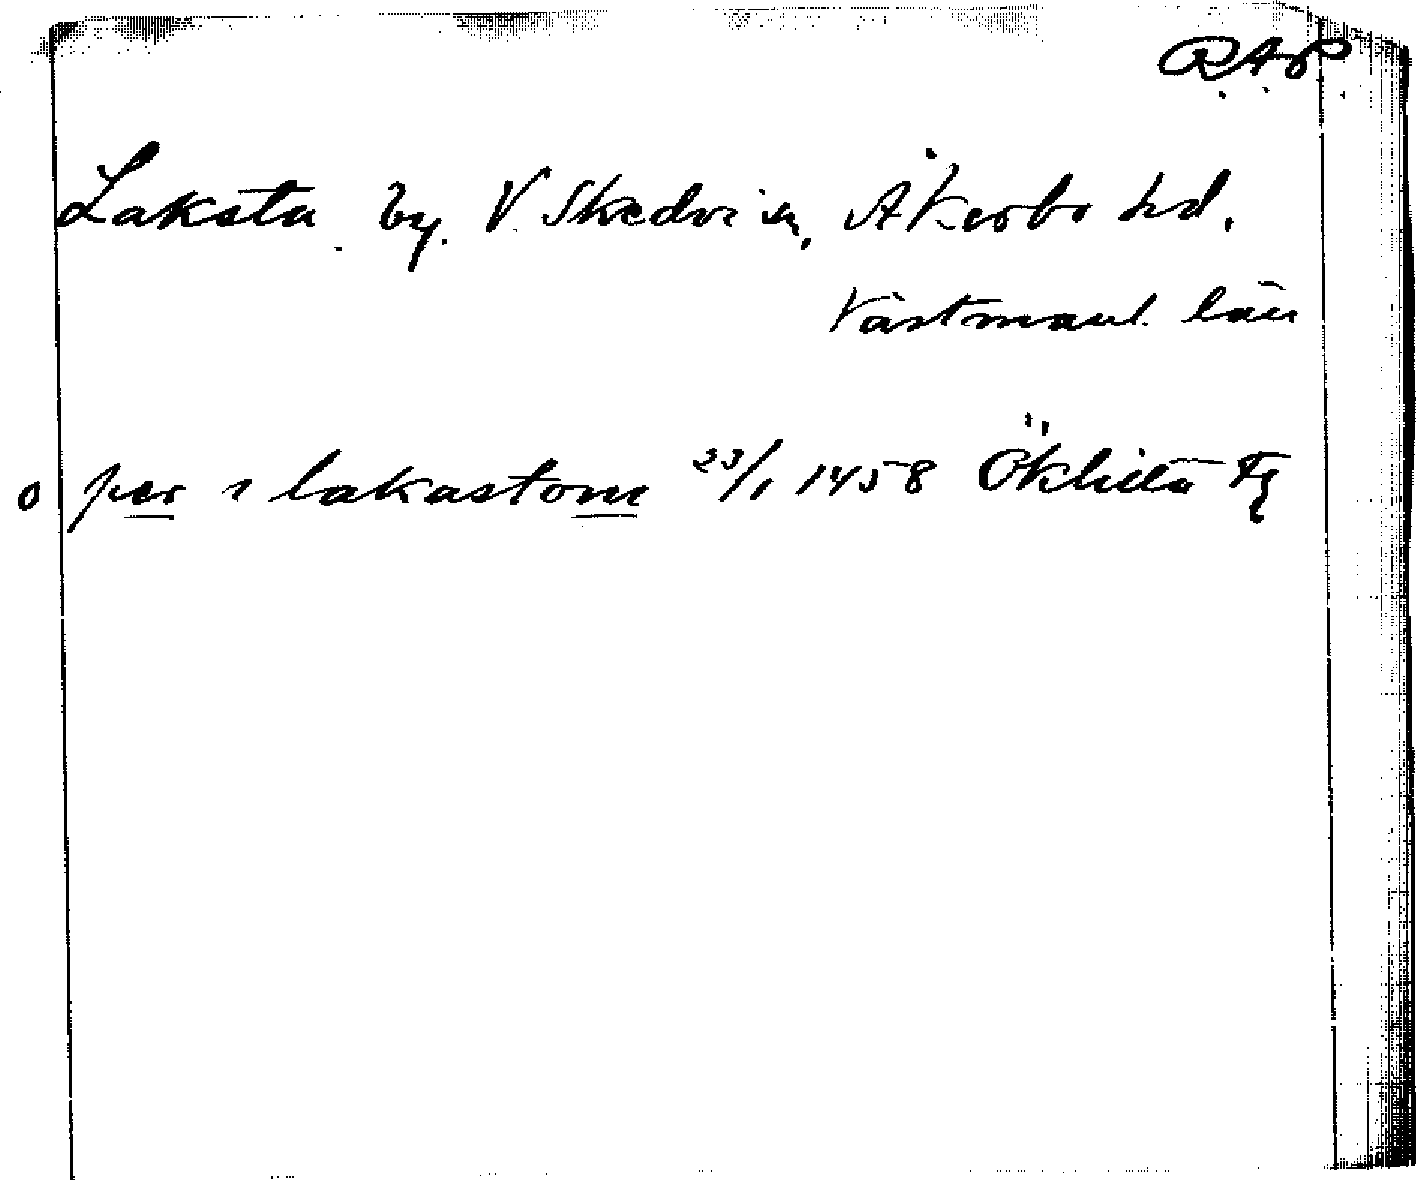 RAP
Laksta by. V. Skedvi sn, Åkerbo hd.
Västmanl. län
o per i lakastom 23/1 1458 Öklista Fg